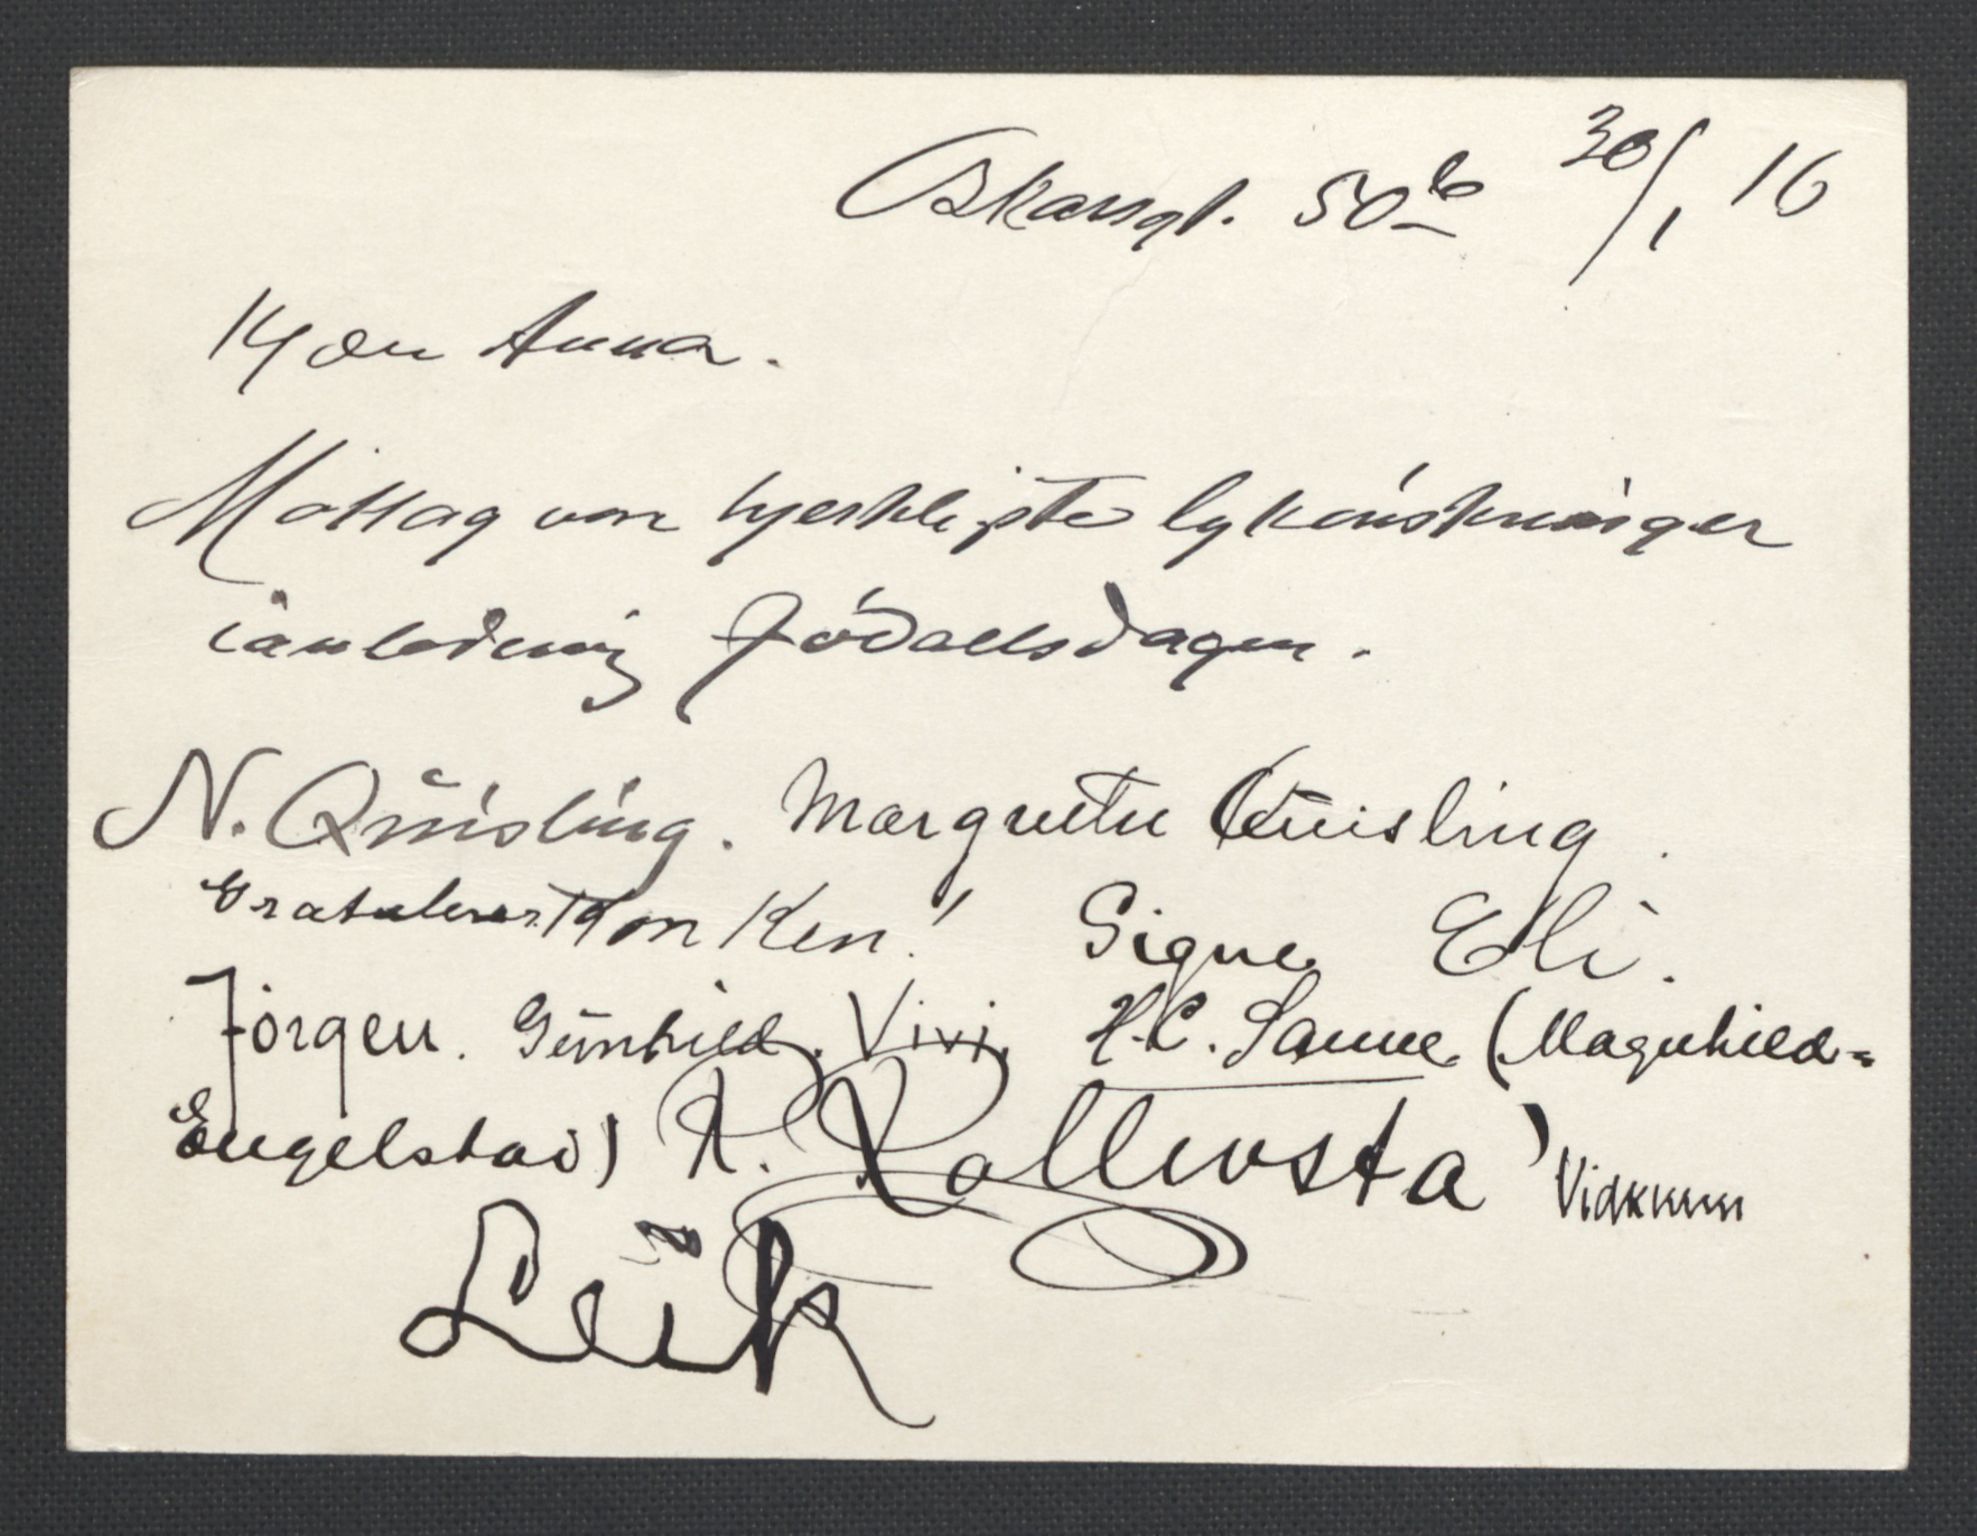 Oskarsgt. 50b 30/1 16
Kjære Anna.
Mottag vore hjerteligste lykønskninger
i anledning fødselsdagen.
N. Quisling. Margrethe Quisling.
Gratulerer Signe Eli.
Jörgen. Gunhild. Vivi. H.C. Sanne (Magnhild-
Engelstad) R. Rollevsta Vidkunn
Leik